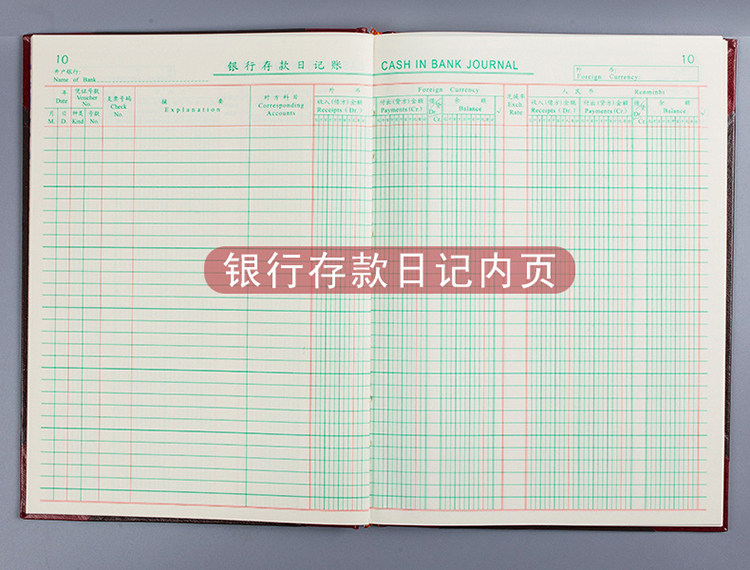 10
开户银行:
Name of Bank
银行存款日记账
CASH IN BANK JOURNAL
10
外 币:
Foreign Currency:
年
Date
凭证号数
Voucher
No.
支票号码
Check
No.
摘 要
Explanation
对方科目
Corresponding
Accounts
外 币
Foreign Currency
收入(借方)金额
Receipts (Dr.)
付出(贷方)金额
Payments(Cr.)
借/贷
Dr.
Cr.
余 额
Balance
√
兑换率
Exch.
Rate
人 民 币
Renminbi
收入(借方)金额
Receipts (Dr.)
付出(贷方)金额
Payments(Cr.)
借/贷
Dr.
Cr.
余 额
Balance
√
月
M.
日
D.
种类
Kind
号数
No.
银行存款日记内页